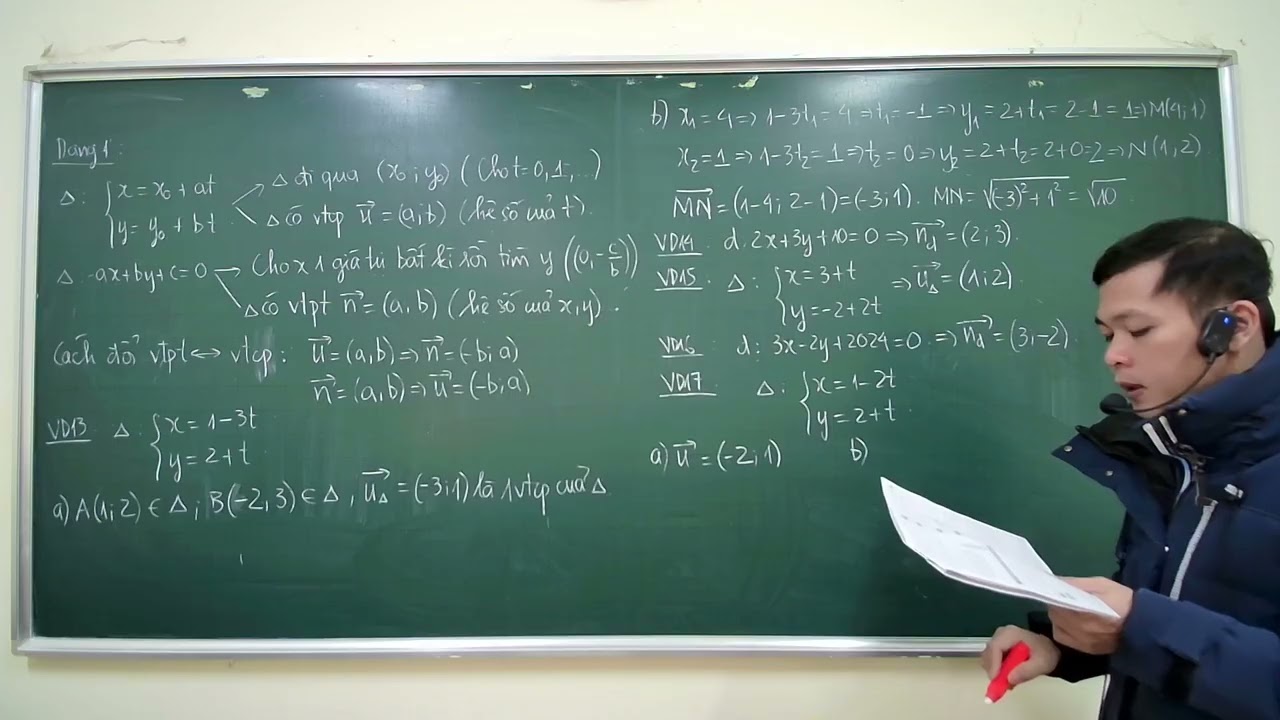 Dạng 1:
Δ: { x = x₀ + at
y = y₀ + bt
Δ đi qua (x₀; y₀) (Cho t = 0, 1, ...)
Δ có vtcp u⃗ = (a; b) (hệ số của t).
Δ: ax + by + c = 0
Cho x 1 giá trị bất kì rồi tìm y ((0, -c/b))
Δ có vtpt n⃗ = (a, b) (hệ số của x, y).
Cách đổi vtpt ↔ vtcp: u⃗ = (a, b) ⇒ n⃗ = (-b; a)
n⃗ = (a, b) ⇒ u⃗ = (-b, a)
VD13 Δ: { x = 1 - 3t
y = 2 + t
a) A(1; 2) ∈ Δ; B(-2, 3) ∈ Δ, u⃗_Δ = (-3; 1) là 1 vtcp của Δ.
b) x₁ = 4 ⇒ 1 - 3t₁ = 4 ⇒ t₁ = -1 ⇒ y₁ = 2 + t₁ = 2 - 1 = 1 ⇒ M(4; 1)
x₂ = 1 ⇒ 1 - 3t₂ = 1 ⇒ t₂ = 0 ⇒ y₂ = 2 + t₂ = 2 + 0 = 2 ⇒ N(1, 2)
MN⃗ = (1 - 4; 2 - 1) = (-3; 1). MN = √((-3)² + 1²) = √10
VD14 d: 2x + 3y + 10 = 0 ⇒ n⃗_d = (2; 3).
VD15 Δ: { x = 3 + t
y = -2 + 2t
⇒ u⃗_Δ = (1; 2).
VD16 d: 3x - 2y + 2024 = 0 ⇒ n⃗_d = (3, -2).
VD17 Δ: { x = 1 - 2t
y = 2 + t
a) u⃗ = (-2; 1) b)